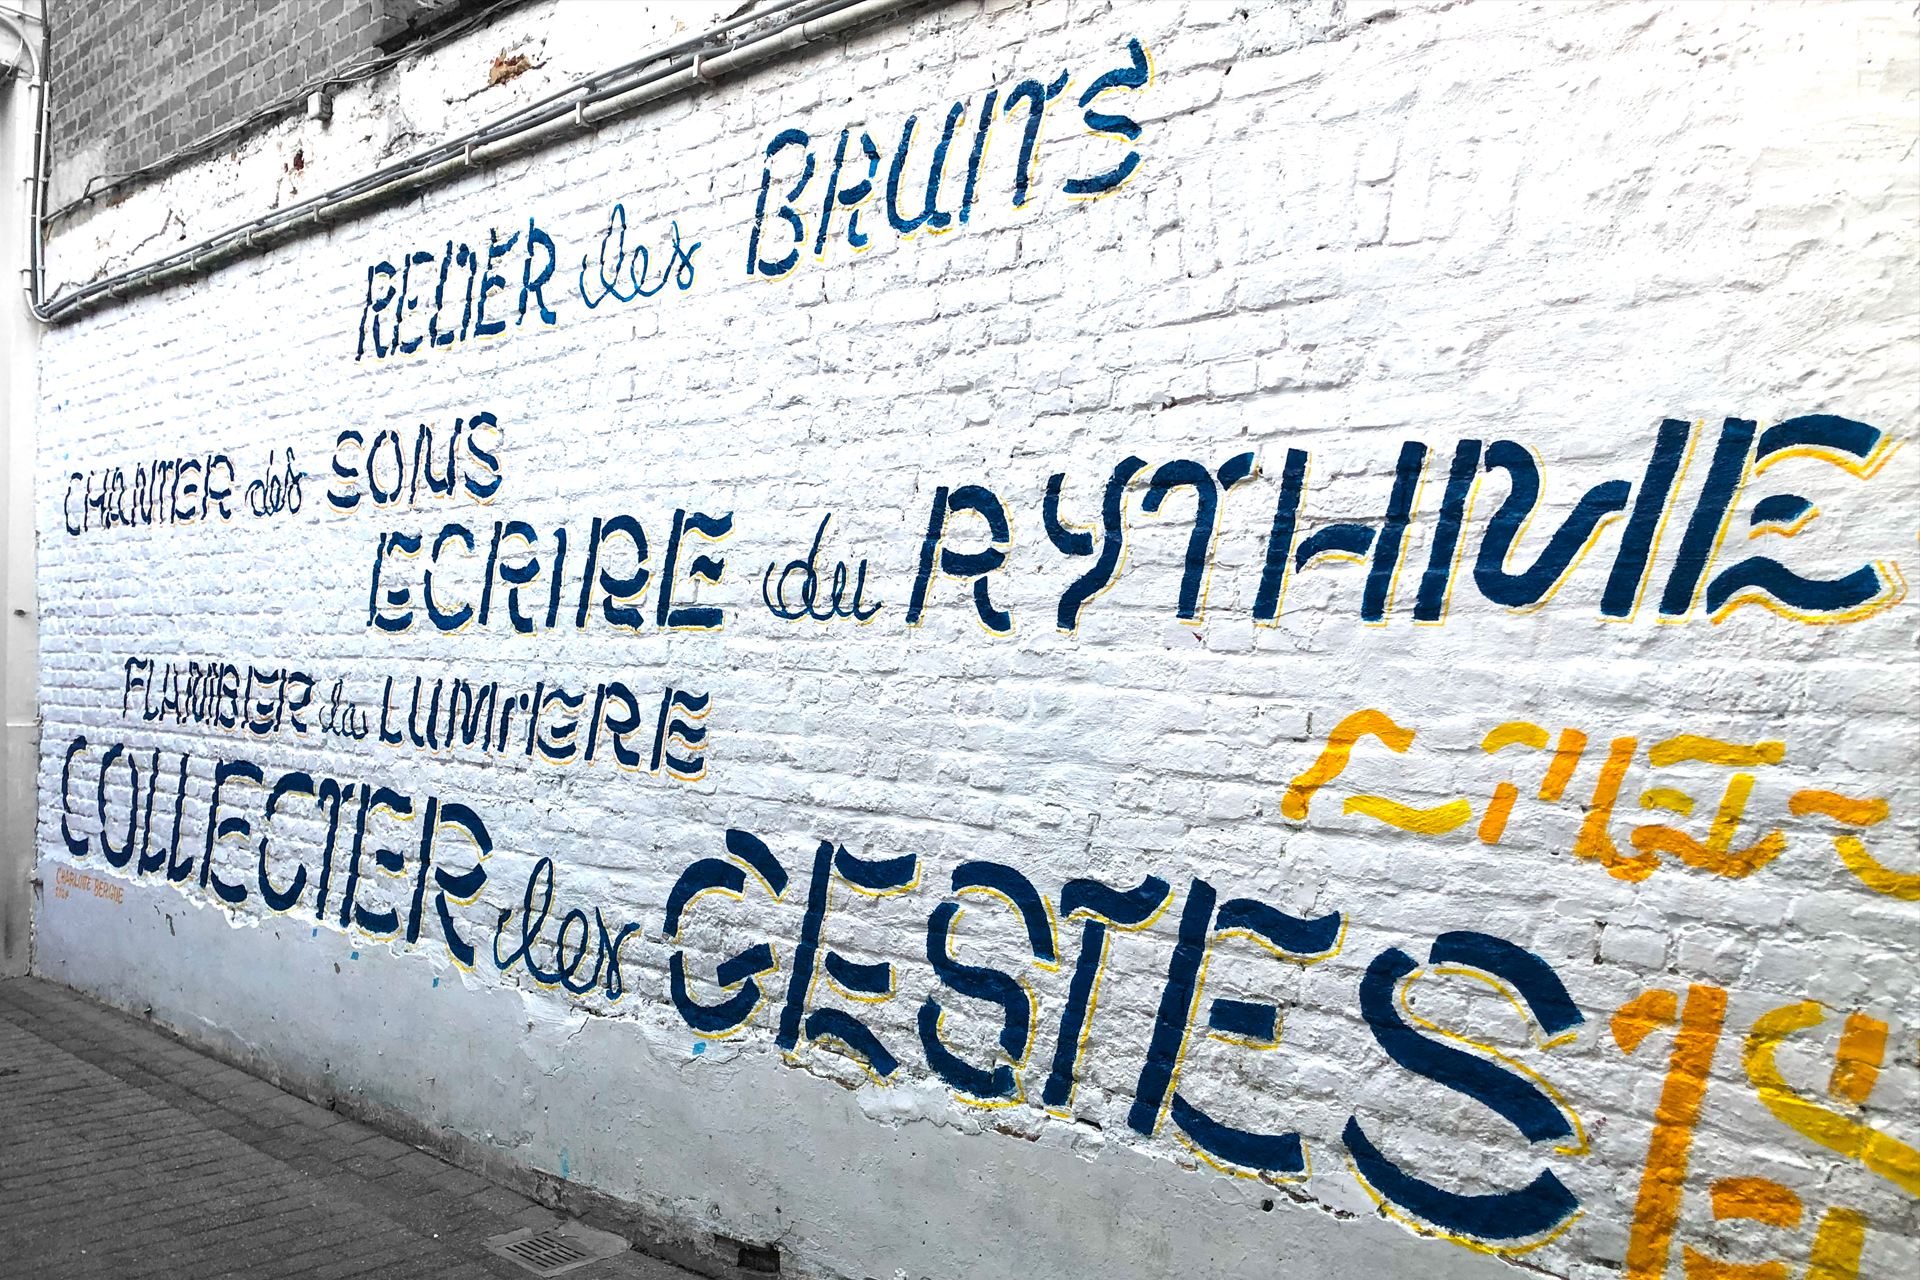 RELIER des BRUITS
CHANTER des SONS
ECRIRE du RYTHME
FLAMBER la LUMIERE
COLLECTER les GESTES
CHARLOTTE BERGUE